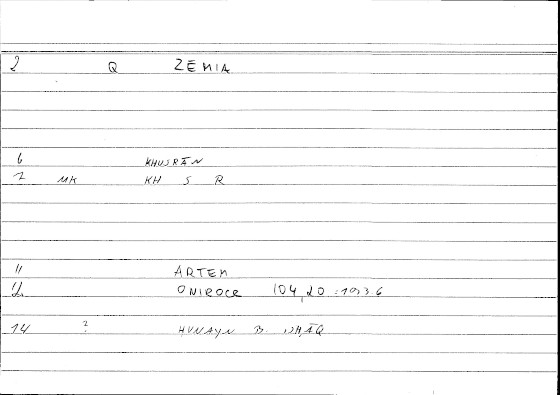 2 Q ZĒMIA
6 KHUSRĀN
7 MK KH S R
11 ARTEM
12 ONIROCR 104,20 : 193.6
14 ? HUNAYN B. ISHĀQ